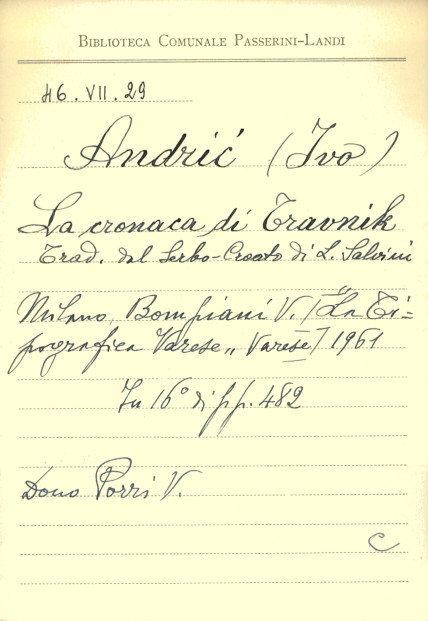 BIBLIOTECA COMUNALE PASSERINI-LANDI
46. VII. 29
Andrić (Ivo)
La cronaca di Travnik
Trad. dal Serbo-Croato di L. Salvini
Milano, Bompiani V. [„La Ti=
pografica Varese„ Varese] 1961
In 16° di pp. 482
Dono Porri V.
C